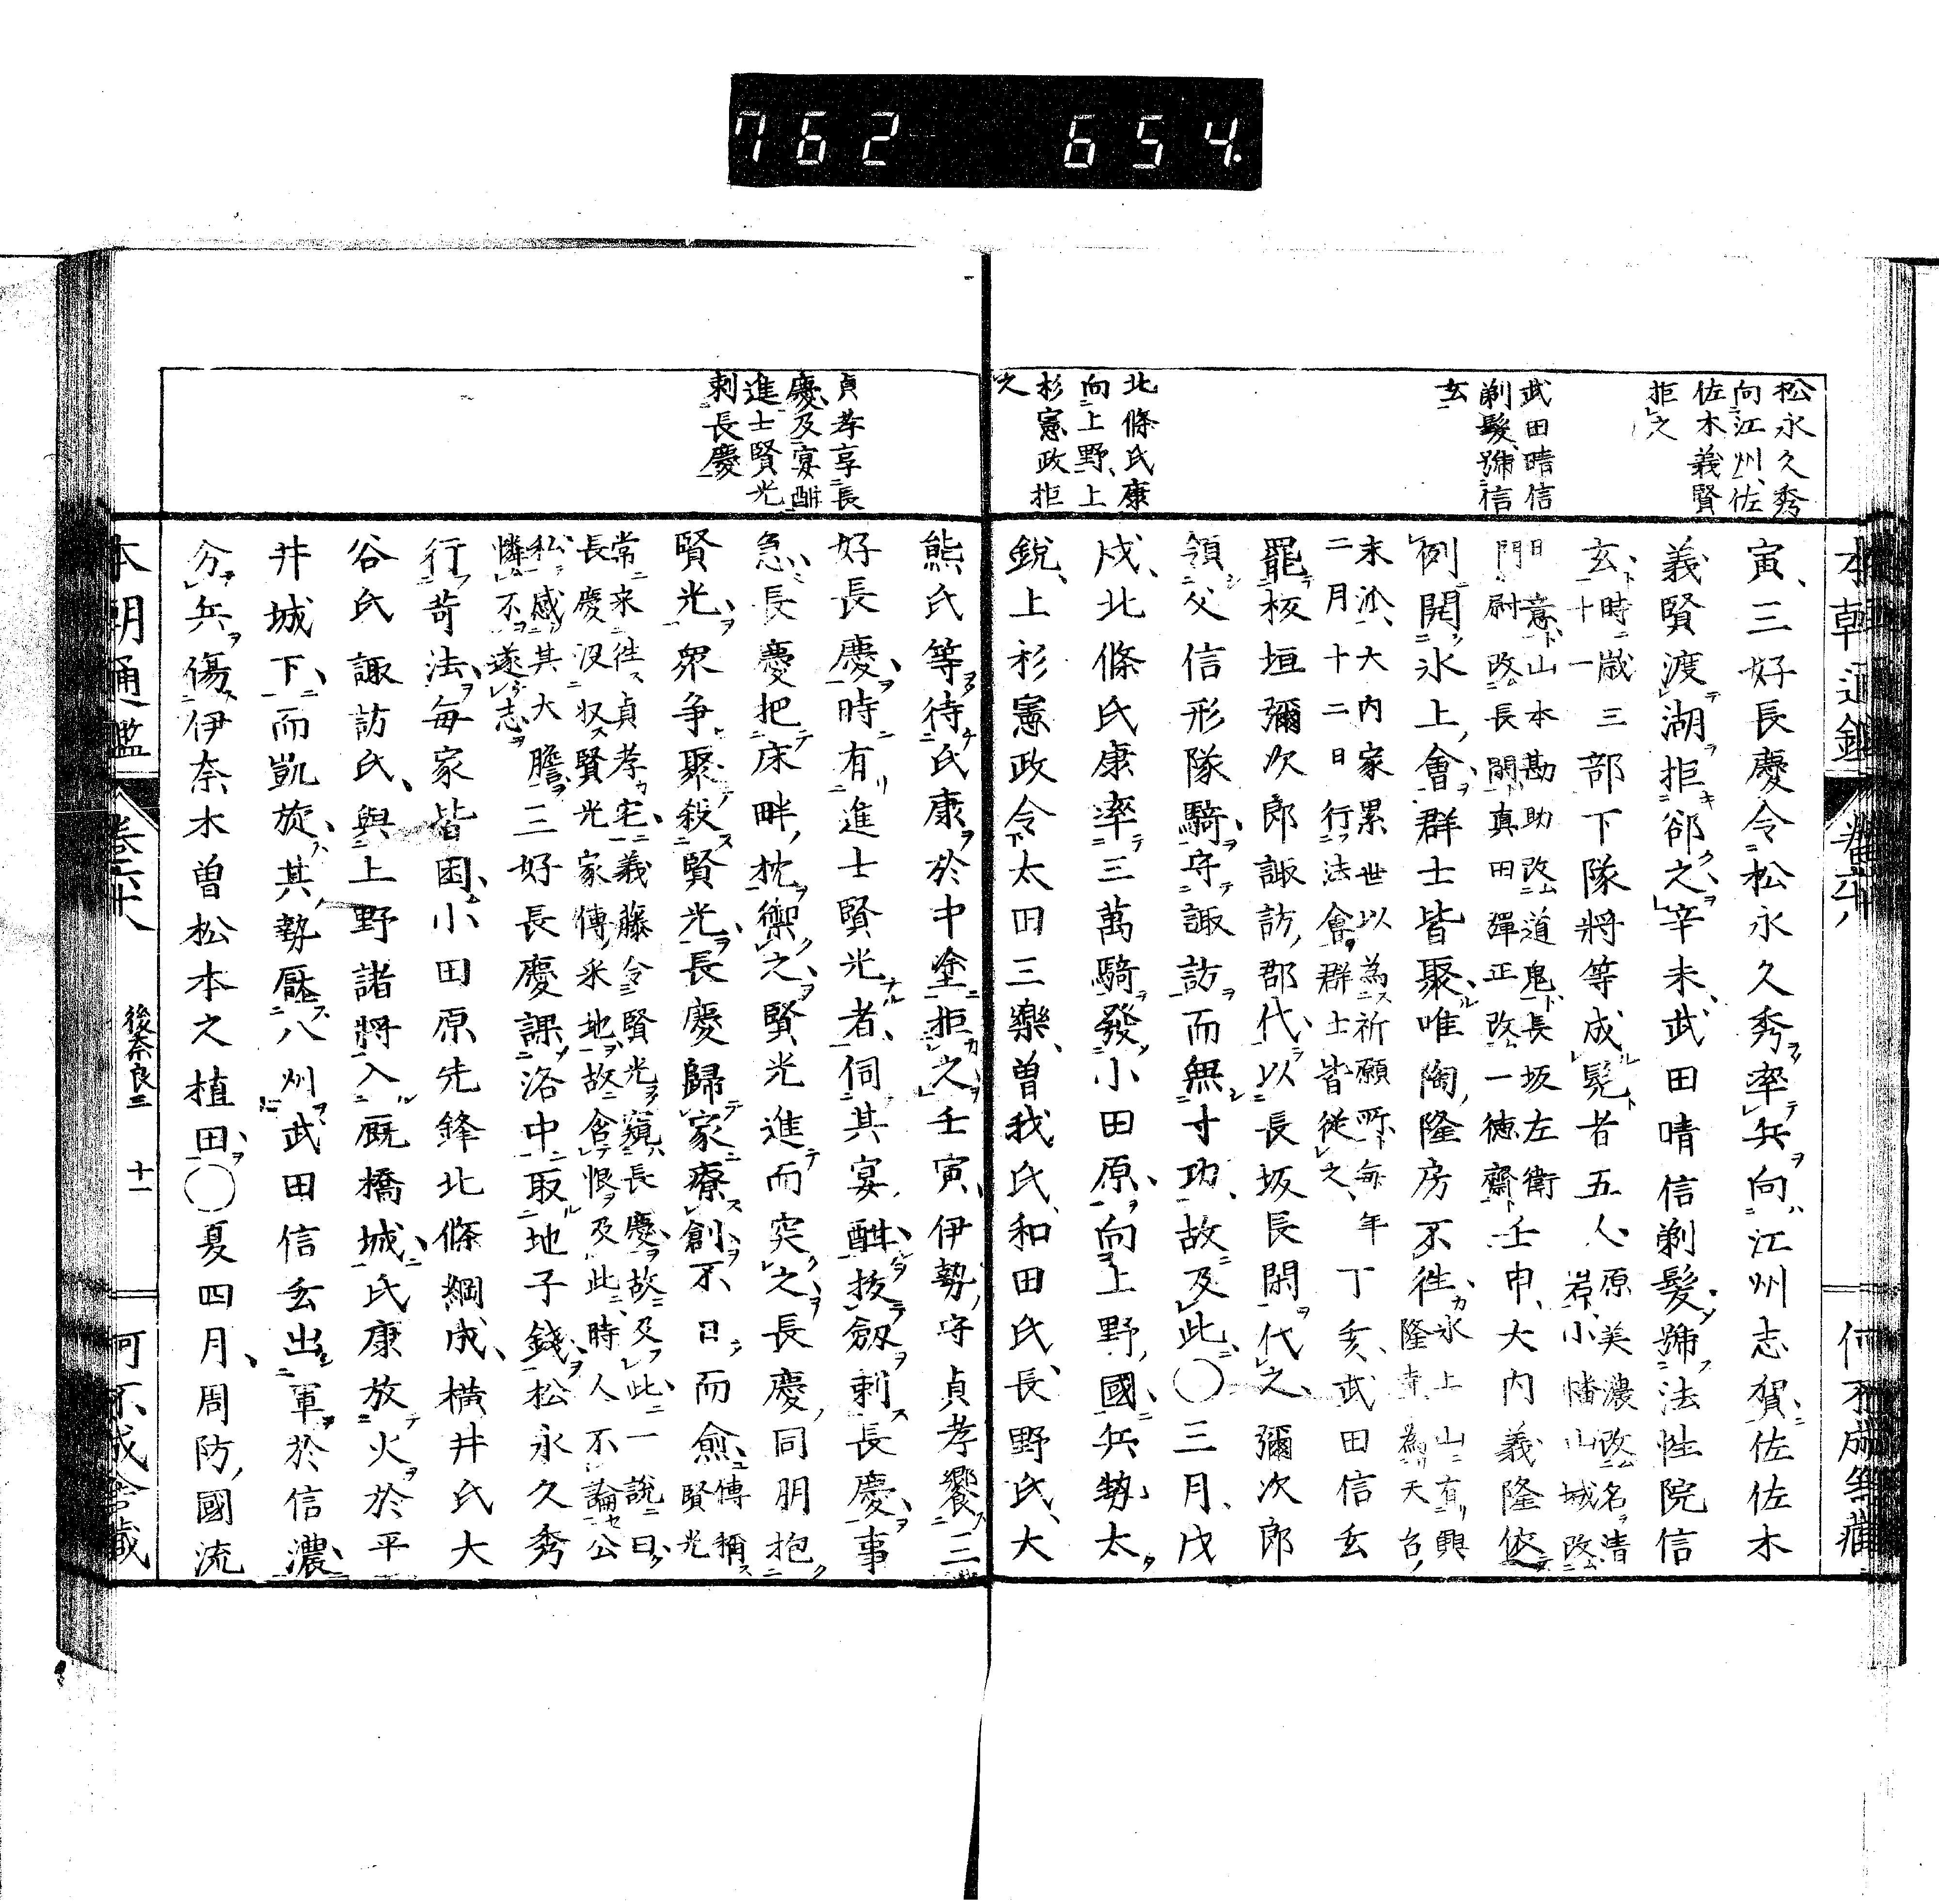 762 654.
松永久秀
向江州佐
佐木義賢
拒之
武田晴信
剃髮號信
玄
北條氏康
向上野上
杉憲政拒
之
寅三好長慶令松永久秀率兵向江州志賀佐佐木
義賢渡湖拒郤之辛未武田晴信剃髮號法性院信
玄時歲三十一部下隊將等成髡者五人原美濃改名清
岩小幡山城改
日意山本勘助改道鬼長坂左衛
門尉改長閑真田彈正改一徳齋壬申大内義隆依
例開氷上會群士皆聚唯陶隆房不徃氷上山有興
隆寺為天台
末派大内家累世以為祈願所每年
二月十二日行法會群士皆從之丁亥武田信玄
罷板垣彌次郎諏訪郡代以長坂長閑代之彌次郎
領父信形隊騎守諏訪而無寸功故及此〇三月戊
戍北條氏康率三萬騎發小田原向上野國兵勢太
銳上杉憲政令太田三樂曽我氏和田氏長野氏大
貞孝享長
慶及宴酣
進士賢光
刺長慶
熊氏等待氏康於中塗拒之壬寅伊勢守貞孝饗三
好長慶時有進士賢光者伺其宴酣拔劔刺長慶事
急長慶把床畔枕禦之賢光進而突之長慶同朋抱
賢光衆争聚殺賢光長慶歸家療創不日而愈傳稱
賢光
常来徃貞孝宅義藤令賢光窺長慶故及此一說曰
長慶没収賢光家傳采地故含恨及此時人不論公
私感其大膽
憐不遂志三好長慶課洛中取地子錢松永久秀
行苛法毎家皆困小田原先鋒北條綱成横井氏大
谷氏諏訪氏與上野諸將入厩橋城氏康放火於平
井城下而凱旋其勢壓八州武田信玄出軍於信濃
分兵傷伊奈木曽松本之植田〇夏四月周防國流
本朝通鑑
卷六十八
後奈良三
十一